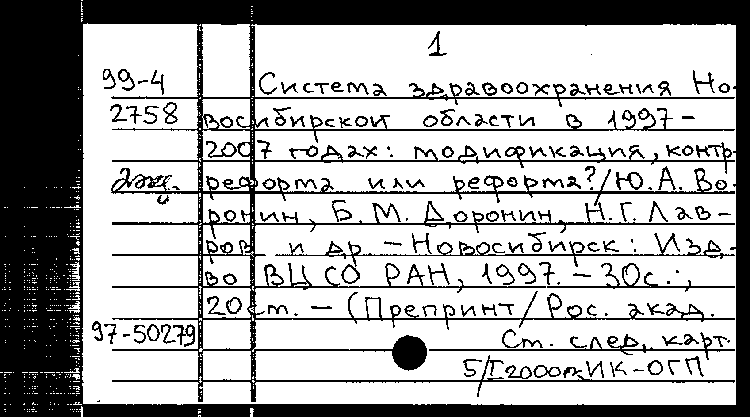 1
99-4 Система здравоохранения Но-
2758 восибирской области в 1997-
2007 годах: модификация, контр-
2экз. реформа или реформа?/Ю.А. Во-
ронин, Б.М. Доронин, Н.Г. Лав-
ров и др. - Новосибирск: Изд-
во ВЦ СО РАН, 1997. - 30с.;
20 см. - (Препринт/Рос. акад.
97-50279 См. след. карт.
5/I 2000 ИК-ОГП